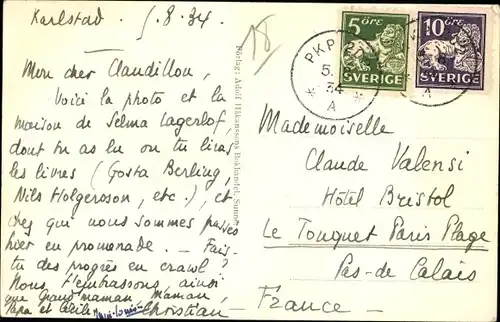 Karlstad. 5.8.34.
18
Mon cher Claudillon,
Voici la photo et la
maison de Selma Lagerlof,
dont tu as lu ou tu liras
les livres (Gosta Berling,
Nils Holgerson, etc.), et
chez qui nous sommes passés
hier en promenade. — Fais-
tu des progrès en crawl?
Nous t'embrassons, ainsi
que Grand'maman, Maman,
Papa et Cécile
Christian
Förlag: Adolf Håkanssons Bokhandel, Sunne
5 ÖRE
SVERIGE
10 ÖRE
SVERIGE
PKP
5.
34
A
A
Mademoiselle
Claude Valensi
Hôtel Bristol
Le Touquet Paris Plage
Pas-de Calais
France —